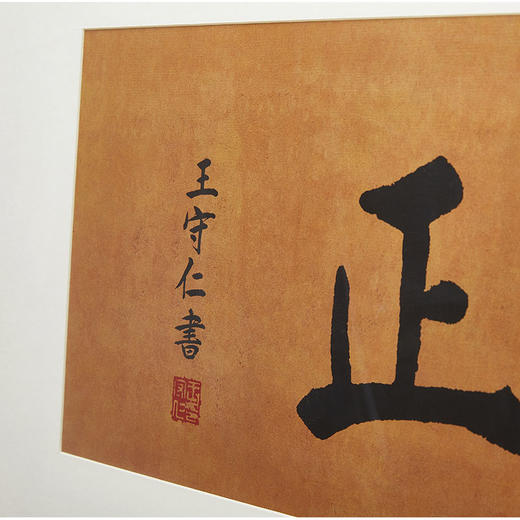 正
王守仁書